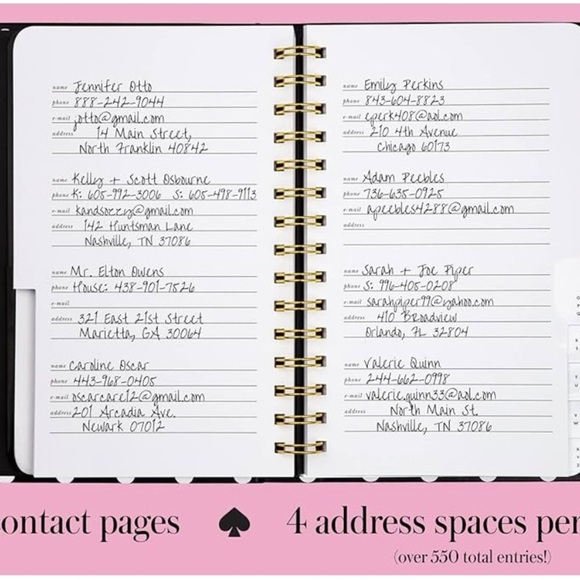 name Jennifer Otto
phone 888-242-9044
e-mail jotto@gmail.com
address 14 Main Street,
North Franklin 40842
name Kelly + Scott Osbourne
phone K: 605-992-3006 S: 605-498-9113
e-mail kandsozzy@gmail.com
address 142 Huntsman Lane
Nashville, TN 37086
name Mr. Elton Owens
phone House: 438-901-7526
e-mail
address 321 East 21st Street
Marietta, GA 30064
name Caroline Oscar
phone 443-968-0405
e-mail oscarcare12@gmail.com
address 201 Arcadia Ave.
Newark 07012
name Emily Perkins
phone 843-604-8823
e-mail eperk408@aol.com
address 210 4th Avenue
Chicago 60173
name Adam Peebles
phone 736-635-0925
e-mail apeebles4288@gmail.com
address
name Sarah + Joe Piper
phone S: 996-405-0208
e-mail sarahpiper99@yahoo.com
address 410 Broadview
Orlando, FL 32804
name Valerie Quinn
phone 244-662-0998
e-mail valerie.quinn33@aol.com
address North Main St.
Nashville, TN 37086
ontact pages ♠ 4 address spaces per
(over 550 total entries!)